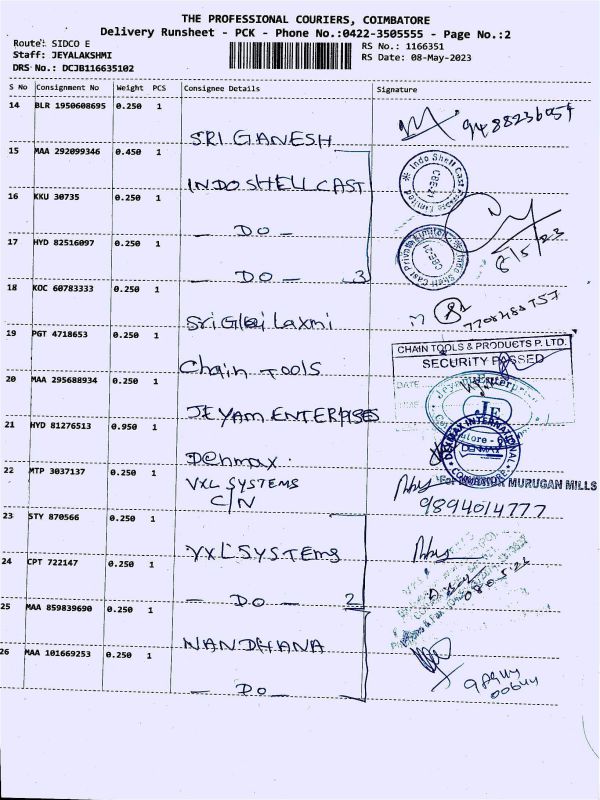 THE PROFESSIONAL COURIERS, COIMBATORE
Delivery Runsheet - PCK - Phone No.:0422-3505555 - Page No.:2
Route: SIDCO E
RS No.: 1166351
Staff: JEYALAKSHMI
RS Date: 08-May-2023
DRS No.: DCJB116635102
S No Consignment No Weight PCS Consignee Details Signature
14 BLR 1950608695 0.250 1
SRI GANESH
15 MAA 292099346 0.450 1
INDOSHELLCAST
16 KKU 30735 0.250 1
— DO —
8/5/23
17 HYD 82516097 0.250 1
— DO — 3
18 KOC 60783333 0.250 1
Laxmi
19 PGT 4718653 0.250 1
CHAIN TOOLS & PRODUCTS P. LTD.
SECURITY PASSED
DATE
Chain TOOLS
20 MAA 295688934 0.250 1
JEYAM ENTERPRISES
JE
21 HYD 81276513 0.950 1
DENMAX
Denmax.
22 MTP 3037137 0.250 1
VXL SYSTEMS
C/N
MURUGAN MILLS
9894014777
23 STY 870566 0.250 1
VXL SYSTEMS
24 CPT 722147 0.250 1
— DO — 2
25 MAA 859839690 0.250 1
NANDHANA
26 MAA 101669253 0.250 1
— DO —